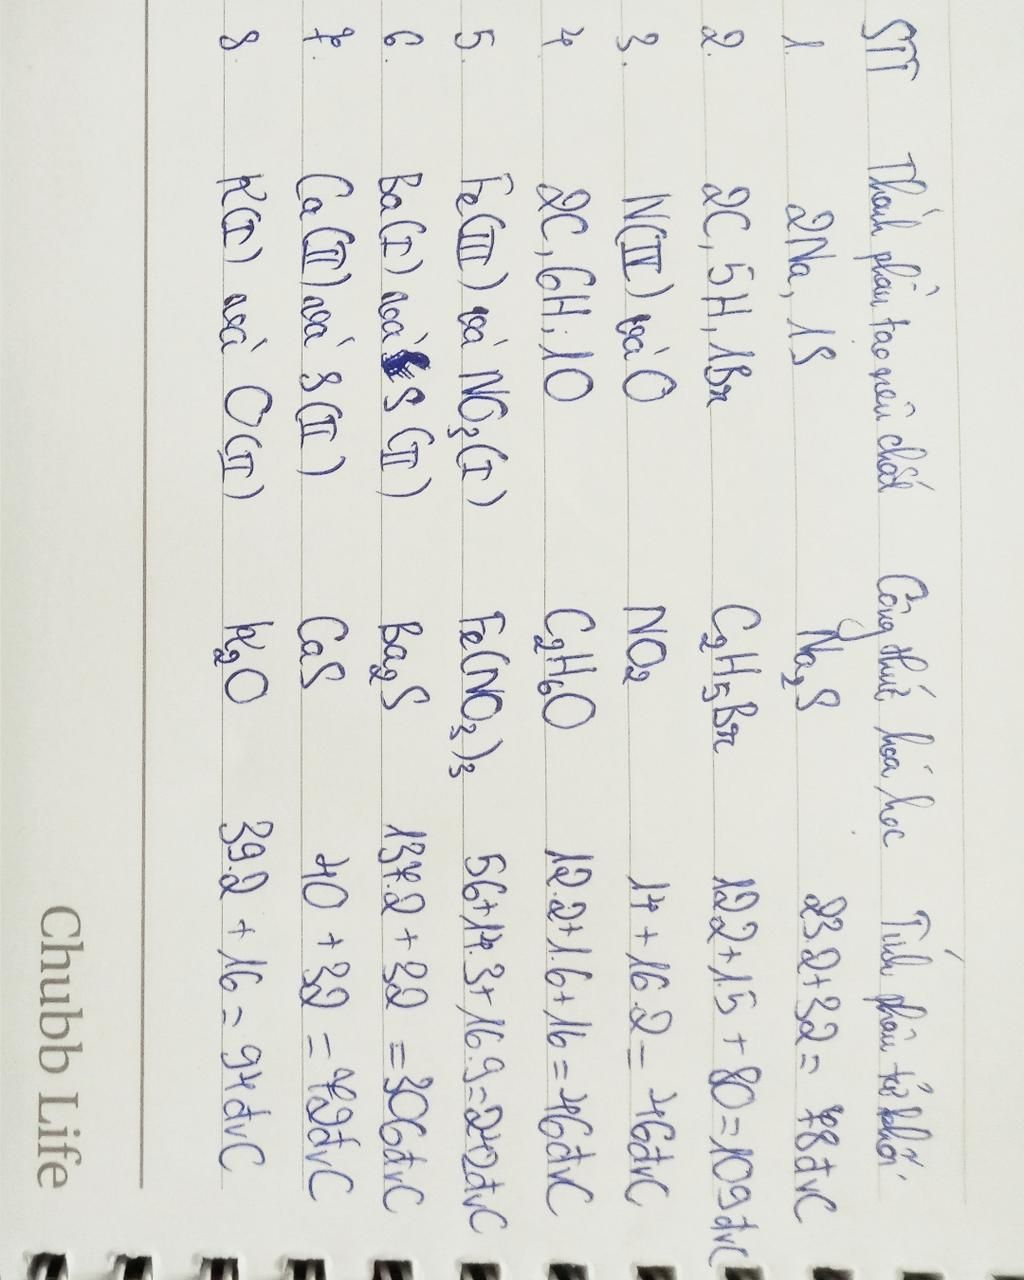 STT Thành phần tạo nên chất Công thức hoá học Tính phân tử khối
1. 2Na, 1S Na2S 23.2+32= 78đvC
2. 2C, 5H, 1Br C2H5Br 12.2+1.5 + 80=109đvC
3. N(IV) và O NO2 14 + 16.2= 46đvC
4. 2C, 6H, 1O C2H6O 12.2+1.6+16=46đvC
5. Fe(III) và NO3(I) Fe(NO3)3 56+14.3+16.9=242đvC
6. Ba(I) và S(II) Ba2S 137.2 + 32 =306đvC
7. Ca(II) và S(II) CaS 40 + 32 = 72đvC
8. K(I) và O(II) K2O 39.2 + 16 = 94đvC
Chubb Life